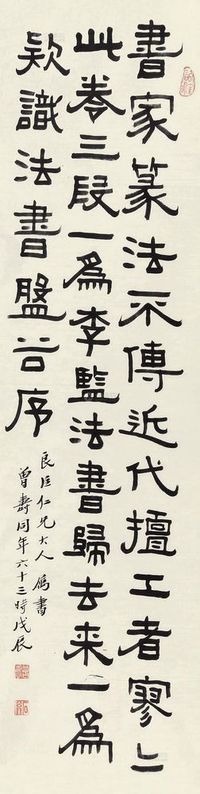 書家篆法不傳近代擅工者寥〻
此卷三段一爲李監法書歸去来一爲
欵識法書盤谷序
良臣仁兄大人屬書
曾壽同年六十三時戊辰